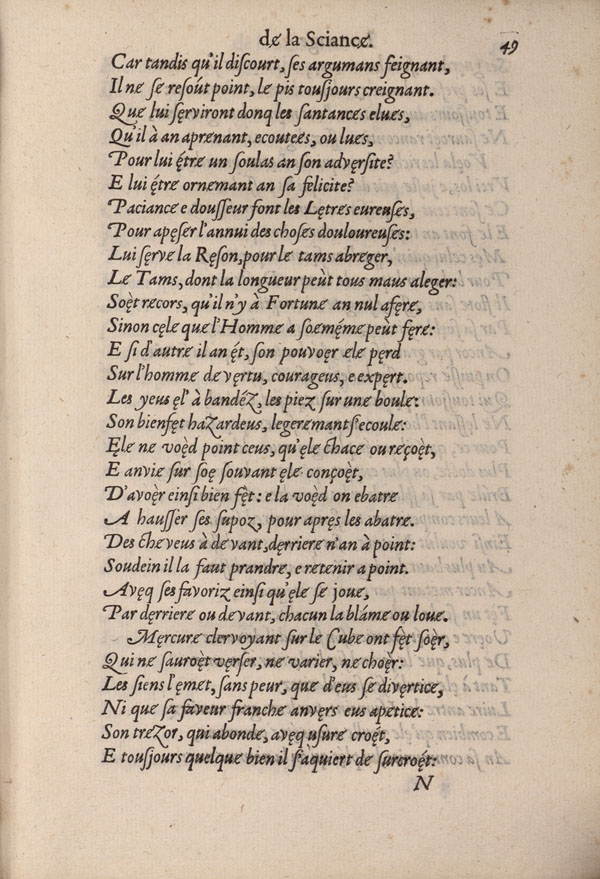 dę la Sciancę.
49
Car tandis qu'il discourt, ſes argumans feignant,
Il ne ſe reſoút point, le pis touſjours creignant.
Que lui ſęrviront donq les ſantances elues,
Qu'il à an aprenant, ecoutees, ou lues,
Pour lui ętre un ſoulas an ſon advęrſite?
E lui ętre ornemant an ſa felicite?
Paciance e douſſeur font les Lętres eureuſes,
Pour apęſer l'annui des choſes douloureuſes:
Lui ſęrve la Ręſon, pour le tams abreger,
Le Tams, dont la longueur peùt tous maus aleger:
Soęt recors, qu'il n'y à Fortune an nul afęre,
Sinon cęle que l'Homme a ſoęmęme peùt fęre:
E ſi d'autre il an ęt, ſon pouvoęr ele pęrd
Sur l'homme de vęrtu, courageus, e expęrt.
Les yeus ęl' à bandéz, les piez ſur une boule:
Son bienfęt hazardeus, legeremant ſ'ecoule:
Ęle ne voęd point ceus, qu'ęle chace ou reçoęt,
E anvie ſur ſoę ſouvant ęle conçoęt,
D'avoęr einſi bien fęt: e la voęd on ebatre
A hauſſer ſes ſupoz, pour apręs les abatre.
Des cheveus à devant, dęrriere n'an à point:
Soudein il la faut prandre, e retenir a point.
Avęq ſes favoriz einſi qu'ęle ſe joue,
Par dęrriere ou devant, chacun la bláme ou loue.
Męrcure clęrvoyant ſur le Cube ont fęt ſoęr,
Qui ne ſauroęt vęrſer, ne varier, ne choęr:
Les ſiens l'ęmet, ſans peur, que d'eus ſe divęrtice,
Ni que ſa faveur franche anvęrs eus apetice:
Son trezor, qui abonde, avęq uſure croęt,
E touſjours quelque bien il ſ'aquiert de ſurcroęt:
N